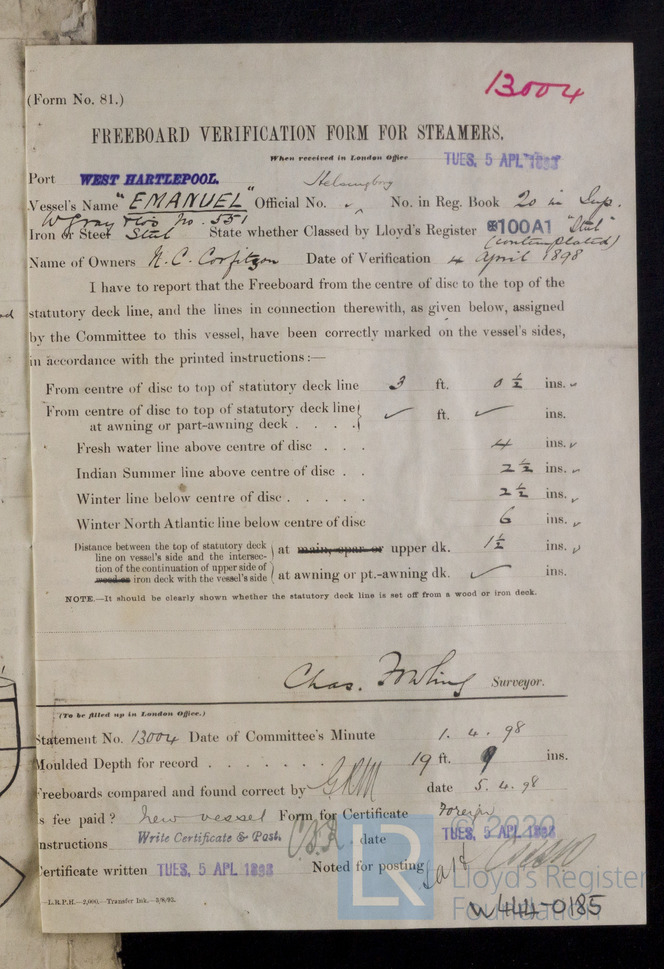 13004
(Form No. 81.)
FREEBOARD VERIFICATION FORM FOR STEAMERS.
When received in London Office TUES, 5 APL 1898
Port WEST HARTLEPOOL. Helsingborg
Vessel's Name "EMANUEL" Official No. ✓ No. in Reg. Book 20 in Sup.
W Gray & Co's No. 551
Iron or Steel Steel State whether Classed by Lloyd's Register ✠100A1 "Steel"
(contemplated)
Name of Owners N. C. Corfitzon Date of Verification 4 April 1898
I have to report that the Freeboard from the centre of disc to the top of the
statutory deck line, and the lines in connection therewith, as given below, assigned
by the Committee to this vessel, have been correctly marked on the vessel's sides,
in accordance with the printed instructions:—
From centre of disc to top of statutory deck line 3 ft. 0 ½ ins. ✓
From centre of disc to top of statutory deck line
at awning or part-awning deck . . . . ✓ ft. ✓ ins.
Fresh water line above centre of disc . . . 4 ins. ✓
Indian Summer line above centre of disc . . 2 ½ ins. ✓
Winter line below centre of disc . . . . . 2 ½ ins. ✓
Winter North Atlantic line below centre of disc 6 ins. ✓
Distance between the top of statutory deck
line on vessel's side and the intersec-
tion of the continuation of upper side of
wood or iron deck with the vessel's side
at main, spar or upper dk. 1 ½ ins. ✓
at awning or pt.-awning dk. ✓ ins.
NOTE.—It should be clearly shown whether the statutory deck line is set off from a wood or iron deck.
Chas. Fowling Surveyor.
(To be filled up in London Office.)
Statement No. 13004 Date of Committee's Minute 1. 4. 98
Moulded Depth for record . . . . . . . 19 ft. 9 ins.
Freeboards compared and found correct by date 5.4.98
Is fee paid? New vessel Form for Certificate Foreign
Instructions Write Certificate & Post. date TUES, 5 APL 1898
Certificate written TUES, 5 APL 1898 Noted for posting
—L.R.P.H.—2,000.—Transfer Ink.—3/8/95.
© 2020
LR
Lloyd's Register
Foundation
W444-0185